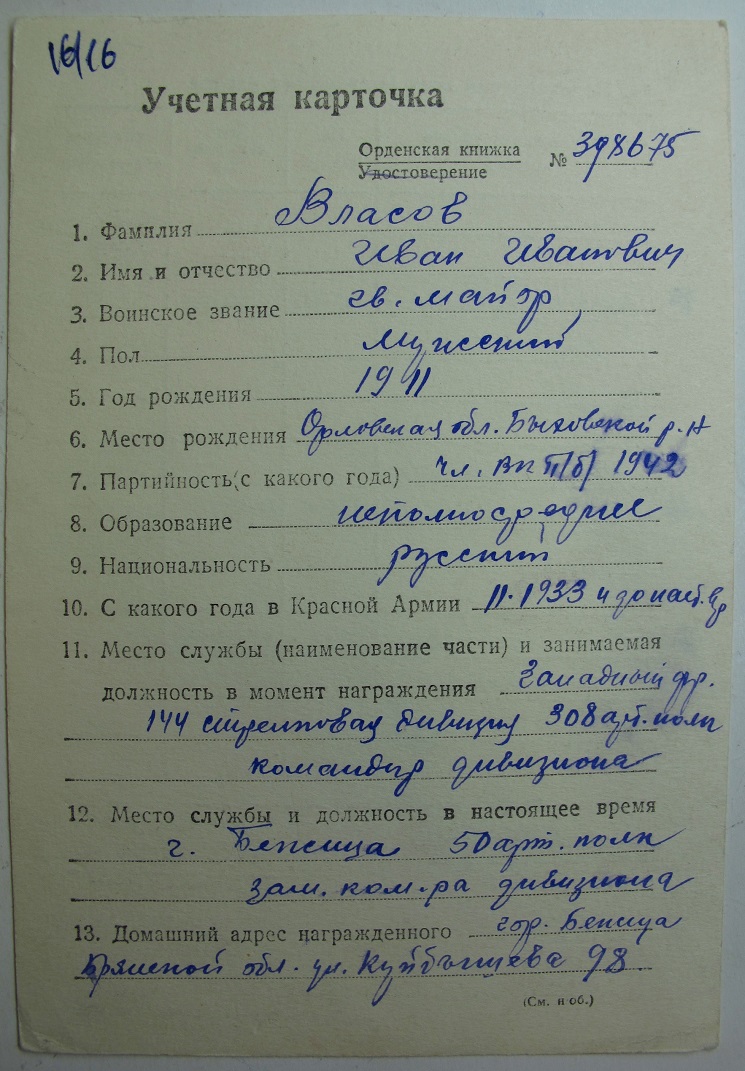 16/16
Учетная карточка
Орденская книжка
Удостоверение
№ 398675
1. Фамилия Власов
2. Имя и отчество Иван Иванович
3. Воинское звание гв. майор
4. Пол Мужский
5. Год рождения 1911
6. Место рождения Орловская обл. р-н
7. Партийность (с какого года) чл. ВКП/б/ 1942
8. Образование неполносреднее
9. Национальность русский
10. С какого года в Красной Армии 11.1933 и до наст. вр
11. Место службы (наименование части) и занимаемая
должность в момент награждения Западный фр.
144 стрелковая дивизия 308 арт. полк
командир дивизиона
12. Место службы и должность в настоящее время
г. Бежица 50 арт. полк
зам. ком-ра дивизиона
13. Домашний адрес награжденного гор. Бежица
Брянской обл. ул. Куйбышева 98
(См. н об.)